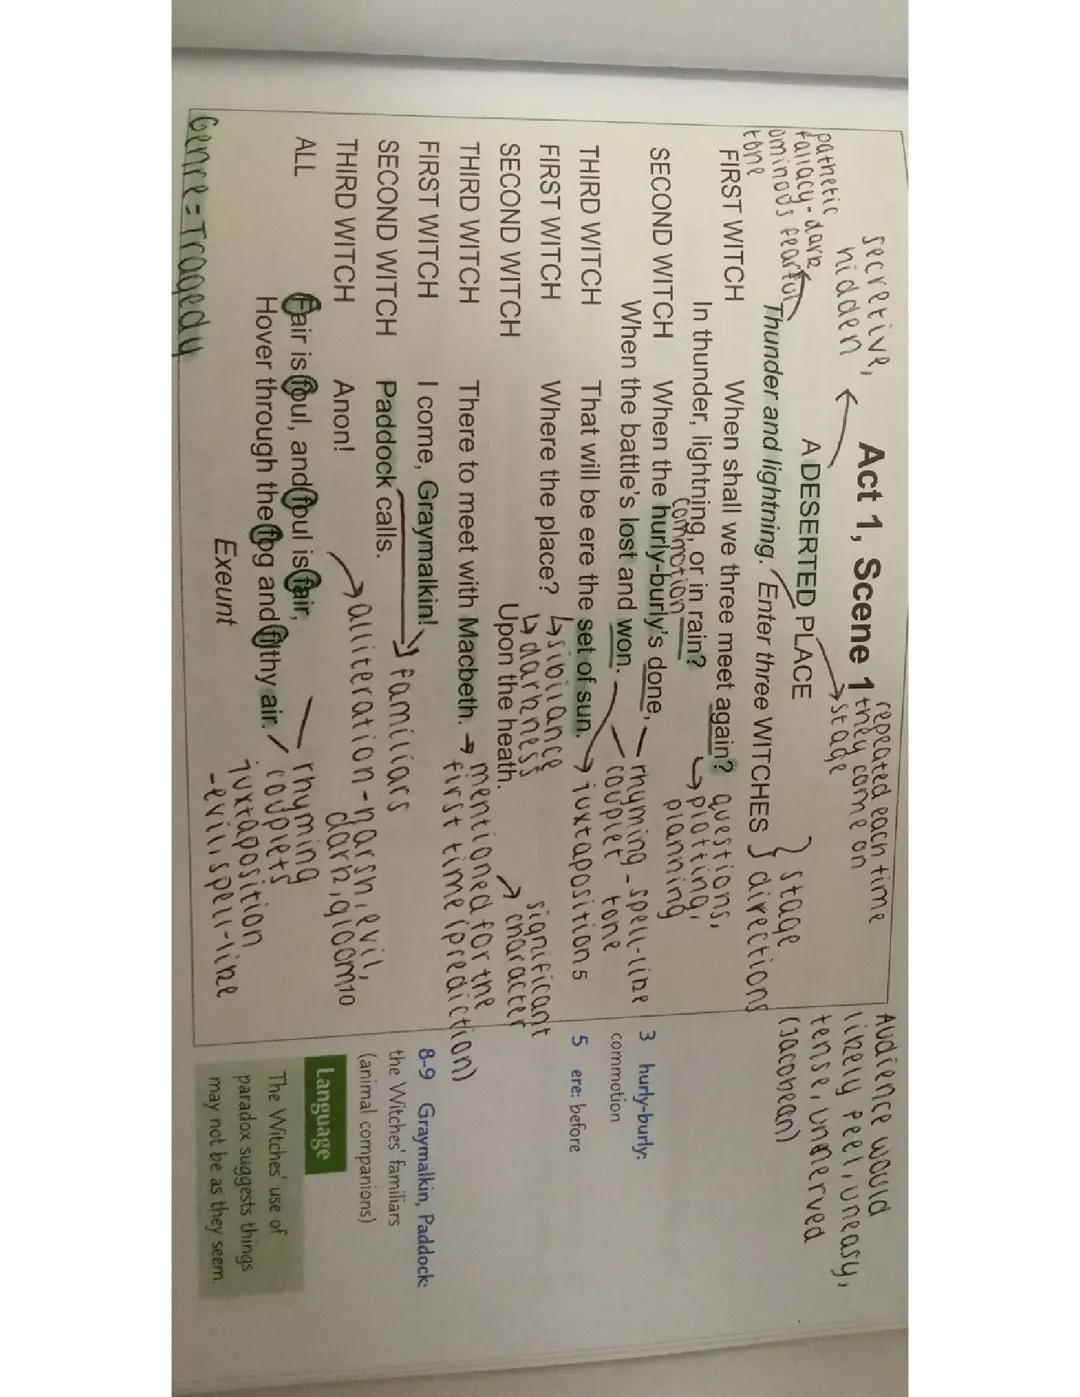 secretive,
hidden
Act 1, Scene 1
repeated each time
they come on
stage
Audience would
likely feel, uneasy,
tense, unnerved
(Jacobean)
A DESERTED PLACE
pathetic
fallacy - dark
ominous, fearful
tone
Thunder and lightning. Enter three WITCHES
stage
directions
FIRST WITCH When shall we three meet again?
In thunder, lightning, or in rain?
questions,
plotting,
planning
commotion
SECOND WITCH When the hurly-burly's done,
When the battle's lost and won.
rhyming - spell-like
couplet tone
THIRD WITCH That will be ere the set of sun.
juxtaposition 5
sibilance
darkness
FIRST WITCH Where the place?
SECOND WITCH Upon the heath.
significant
character
THIRD WITCH There to meet with Macbeth.
mentioned for the
first time (prediction)
FIRST WITCH I come, Graymalkin!
familiars
SECOND WITCH Paddock calls.
THIRD WITCH Anon!
alliteration - harsh, evil,
dark, gloom 10
ALL Fair is foul, and foul is fair,
Hover through the fog and filthy air.
rhyming
couplets
juxtaposition
- evil, spell-like
Exeunt
Genre = Tragedy
3 hurly-burly:
commotion
5 ere: before
8-9 Graymalkin, Paddock:
the Witches' familiars
(animal companions)
Language
The Witches' use of
paradox suggests things
may not be as they seem.